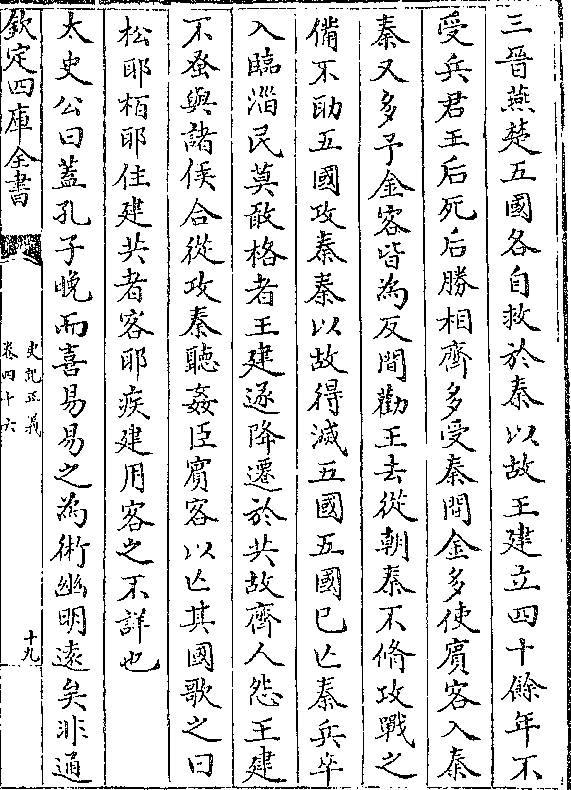 三晉燕楚五國各自救於秦以故王建立四十餘年不
受兵君王后死后勝相齊多受秦間金多使賓客入秦
秦又多予金客皆為反間勸王去從朝秦不脩攻戰之
備不助五國攻秦秦以故得滅五國五國已亾秦兵卒
入臨淄民莫敢格者王建遂降遷於共故齊人怨王建
不蚤與諸侯合從攻秦聽姦臣賓客以亾其國歌之曰
松耶栢耶住建共者客耶疾建用客之不詳也
太史公曰蓋孔子晚而喜易易之為術幽明遠矣非通
欽定四庫全書
史記正義
卷四十六
十九